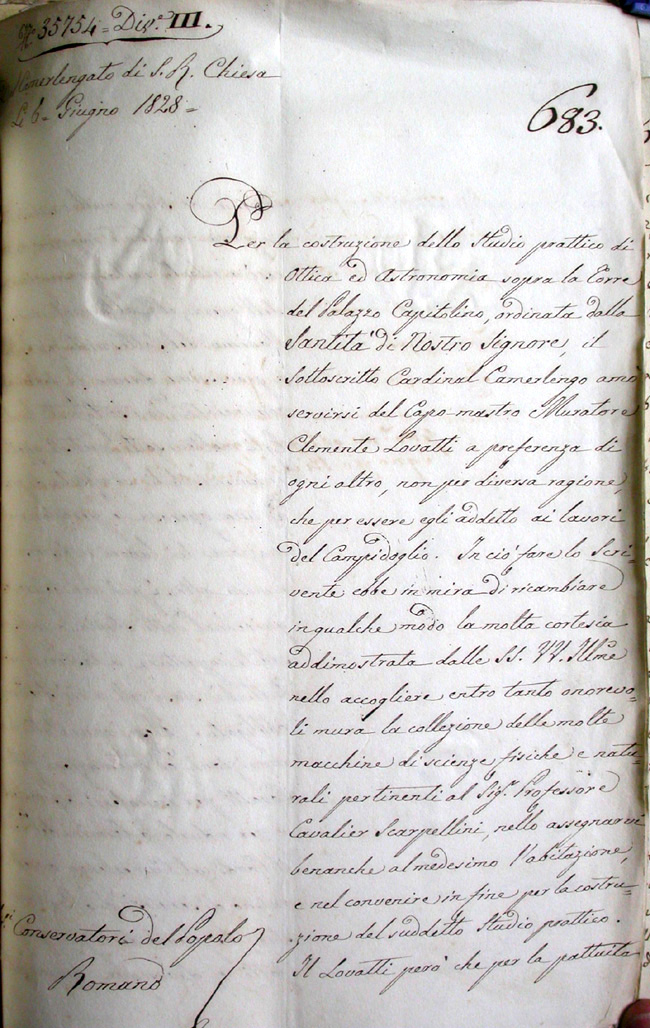 N.° 35754 = Div.e III.
Camerlengato di S. R. Chiesa
Li 6 = Giugno 1828 =
683.
Per la costruzione dello Studio prattico di
Ottica ed Astronomia sopra la Torre
del Palazzo Capitolino, ordinata dalla
Santità di Nostro Signore, il
Sottoscritto Cardinal Camerlengo amò
servirsi del Capo-mastro Muratore
Clemente Lovatti a preferenza di
ogni altro, non per diversa ragione,
che per essere egli addetto ai lavori
del Campidoglio. In ciò fare lo Scri-
vente ebbe in mira di ricambiare
in qualche modo la molta cortesia
addimostrata dalle SS. VV. Illme
nello accogliere entro tanto onorevo-
li mura la collezione delle molte
macchine di scienze fisiche e natu-
rali pertinenti al Sig.r Professore
Cavalier Scarpellini, nello assegnarvi
benanche al medesimo l'abitazione,
e nel convenire in fine per la costru-
zione del suddetto Studio prattico.
Il Lovatti però che per la pattuita
Conservatori del Popolo
Romano